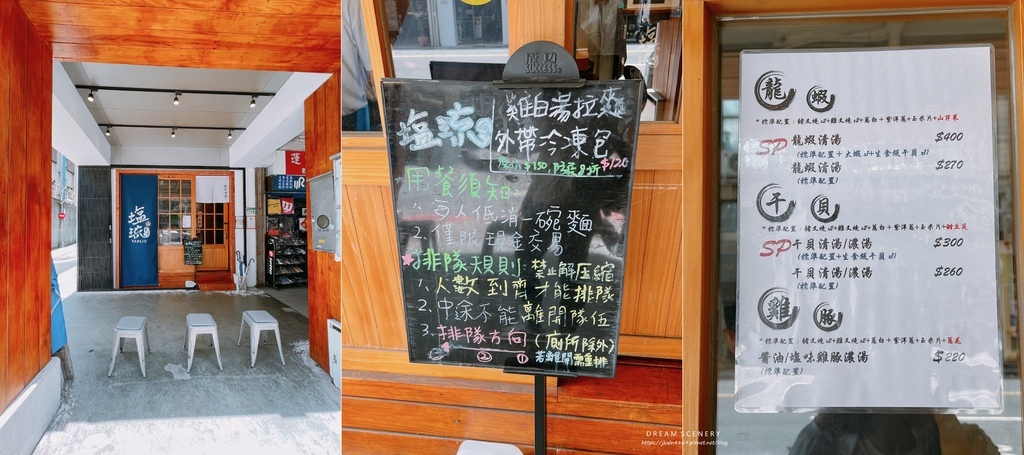 塩琉
YANLIU
運
成功
SUCCESS
塩琉
雞白湯拉麵
外帶冷凍包
$150, $120
用餐須知
1. 每人低消一碗麵
2. 僅限現金交易
排隊規則: 禁止解壓縮
1. 人數到齊才能排隊
2. 中途不能離開隊伍
3. 排隊方向 (廁所除外)
② ① 若離開需重排
龍 蝦
*標準配置:豬叉燒x2+雞叉燒x2+蔥白+紫洋蔥+玉米片+山芹菜
SP 龍蝦清湯 $400
(標準配置+大蝦x1+生食級干貝x1)
龍蝦清湯 $270
(標準配置)
干 貝
*標準配置:豬叉燒x2+雞叉燒x2+蔥白+紫洋蔥+玉米片+甜豆莢
SP 干貝清湯/濃湯 $300
(標準配置+生食級干貝x1)
干貝清湯/濃湯 $260
(標準配置)
雞 豚
醬油/塩味雞豚濃湯 $220
(標準配置)
DREAM SCENERY